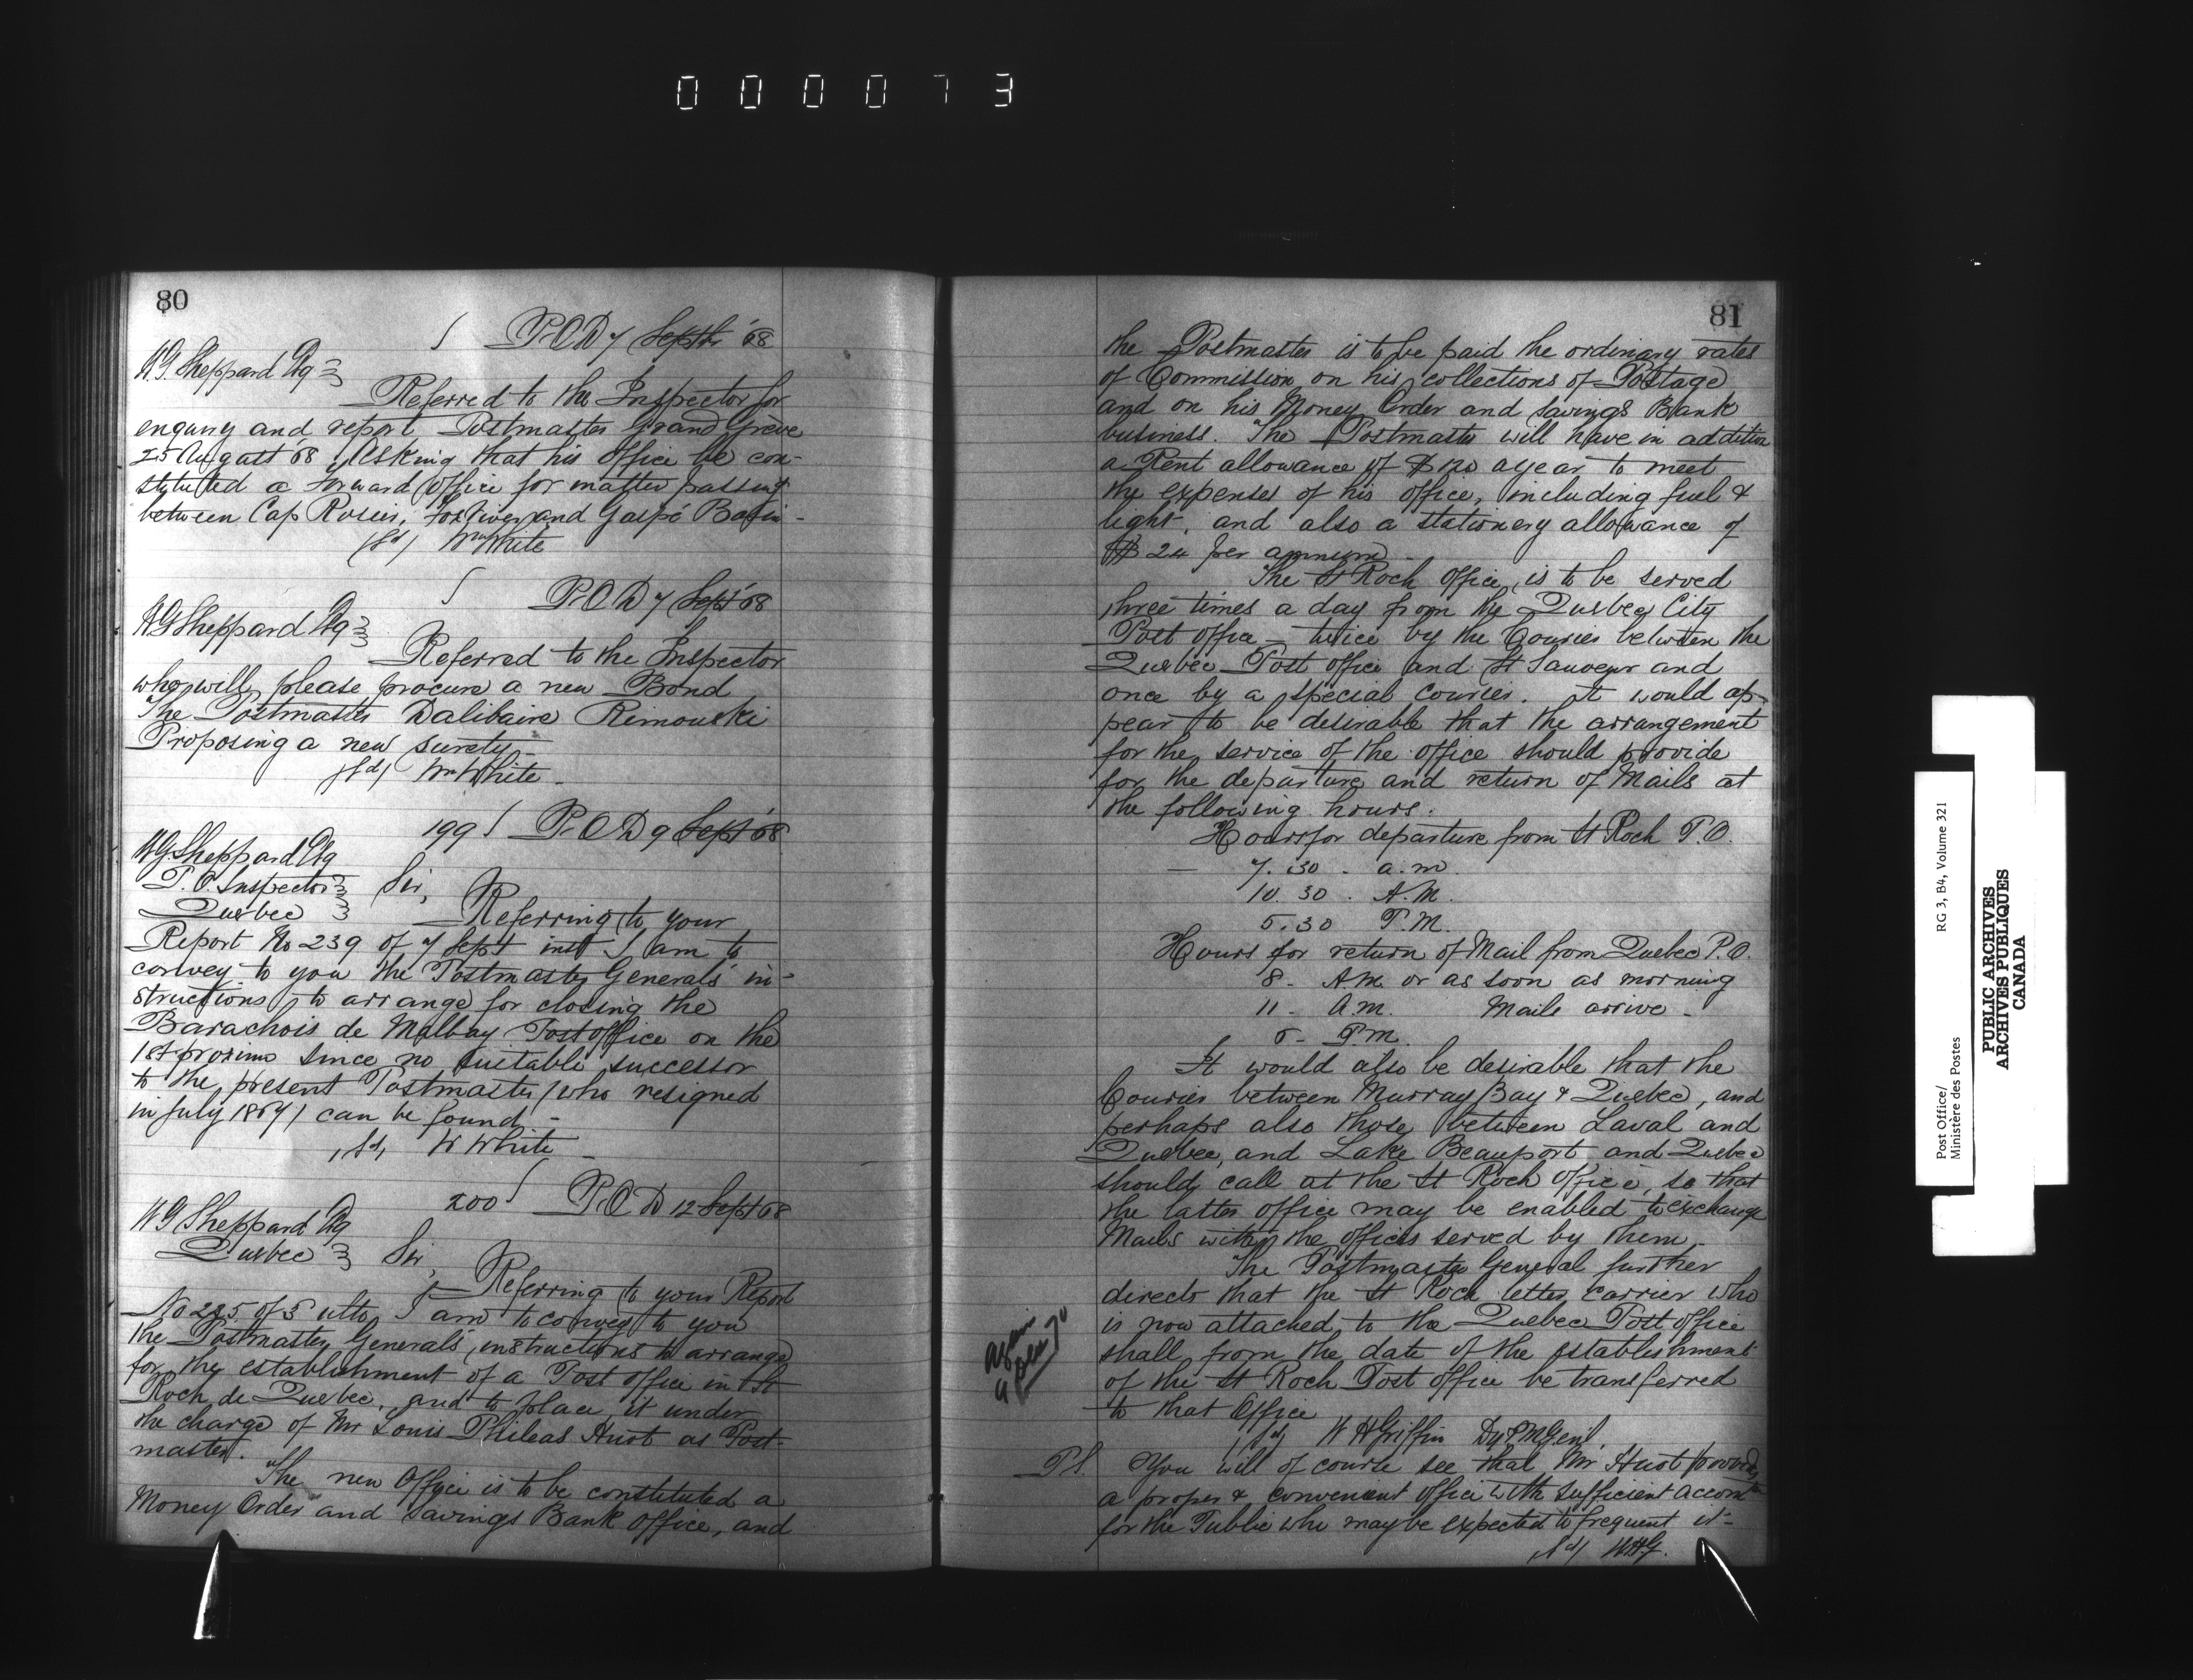 000073
80
P.O.D 7 Septr '68
W.G. Sheppard Esq
Referred to the Inspector for
enquiry and report Postmaster Grand Grève
25 August '68 Asking that his office be con-
stituted a forward Office for matter passing
between Cap Rosier, Fox River, and Gaspé Basin -
(sd) Wm White
P.O.D 7 Sept '68
W G Sheppard Esq
Referred to the Inspector
who will please procure a new Bond
The Postmaster Dalibaire Rimouski
Proposing a new surety -
(sd) Wm White -
199 P.O.D 9 Sept '68
W.G. Sheppard Esq
P.O. Inspector Sir,
Quebec
Referring to your
Report No 239 of 7 Sept inst I am to
convey to you the Postmaster Generals in-
structions to arrange for closing the
Barachois de Malbay Post office on the
1st proximo since no suitable successor
to the present Postmaster (who resigned
in July 1867) can be found -
(sd) W White -
200 P.O.D 12 Sept 68
W G Sheppard Esq
Quebec Sir,
Referring to your Report
No 225 of 5 ulto, I am to convey to you
the Postmaster Generals' instructions to arrange
for the establishment of a Post office in St
Roch de Quebec, and to place it under
the charge of Mr Louis Phileas Huot as Post-
master.
The new Office is to be constituted a
Money Order and Savings Bank office, and
81
the Postmaster is to be paid the ordinary rates
of Commission on his collections of Postage
and on his Money Order and Savings Bank
business. The Postmaster will have in addition
a Rent allowance of $120 a year to meet
the expenses of his office, including fuel &
light, and also a stationery allowance of
$24 per annum -
The St Roch office is to be served
three times a day from the Quebec City
Post office - twice by the Courier between the
Quebec Post office and St Sauveur and
once by a special courier. It would ap-
pear to be desirable that the arrangement
for the service of the office should provide
for the departure and return of Mails at
the following hours.
Hours for departure from St Roch P.O.
— 7.30 - a.m.
10.30 . A.M.
5.30 P.M.
Hours for return of Mail from Quebec P.O.
8 - A.M. or as soon as morning
11 - A.M. Mails arrive -
6 - P.M.
It would also be desirable that the
Courier between Murray Bay & Quebec, and
perhaps also those between Laval and
Quebec, and Lake Beauport and Quebec
should call at the St Roch office, so that
the latter office may be enabled to exchange
Mails with the offices served by them -
The Postmaster General further
directs that the St Roch letter carrier who
is now attached to the Quebec Post office
shall from the date of the establishment
of the St Roch Post office be transferred
to that Office
(sd) W H Griffin Dy P M Genl.
P.S. You will of course see that Mr Huot provides
a proper & convenient office with sufficient accomtn
for the Public who may be expected to frequent it -
(sd) W.H.G.
again
Post Office/ RG 3, B4, Volume 321
Ministère des Postes
PUBLIC ARCHIVES
ARCHIVES PUBLIQUES
CANADA